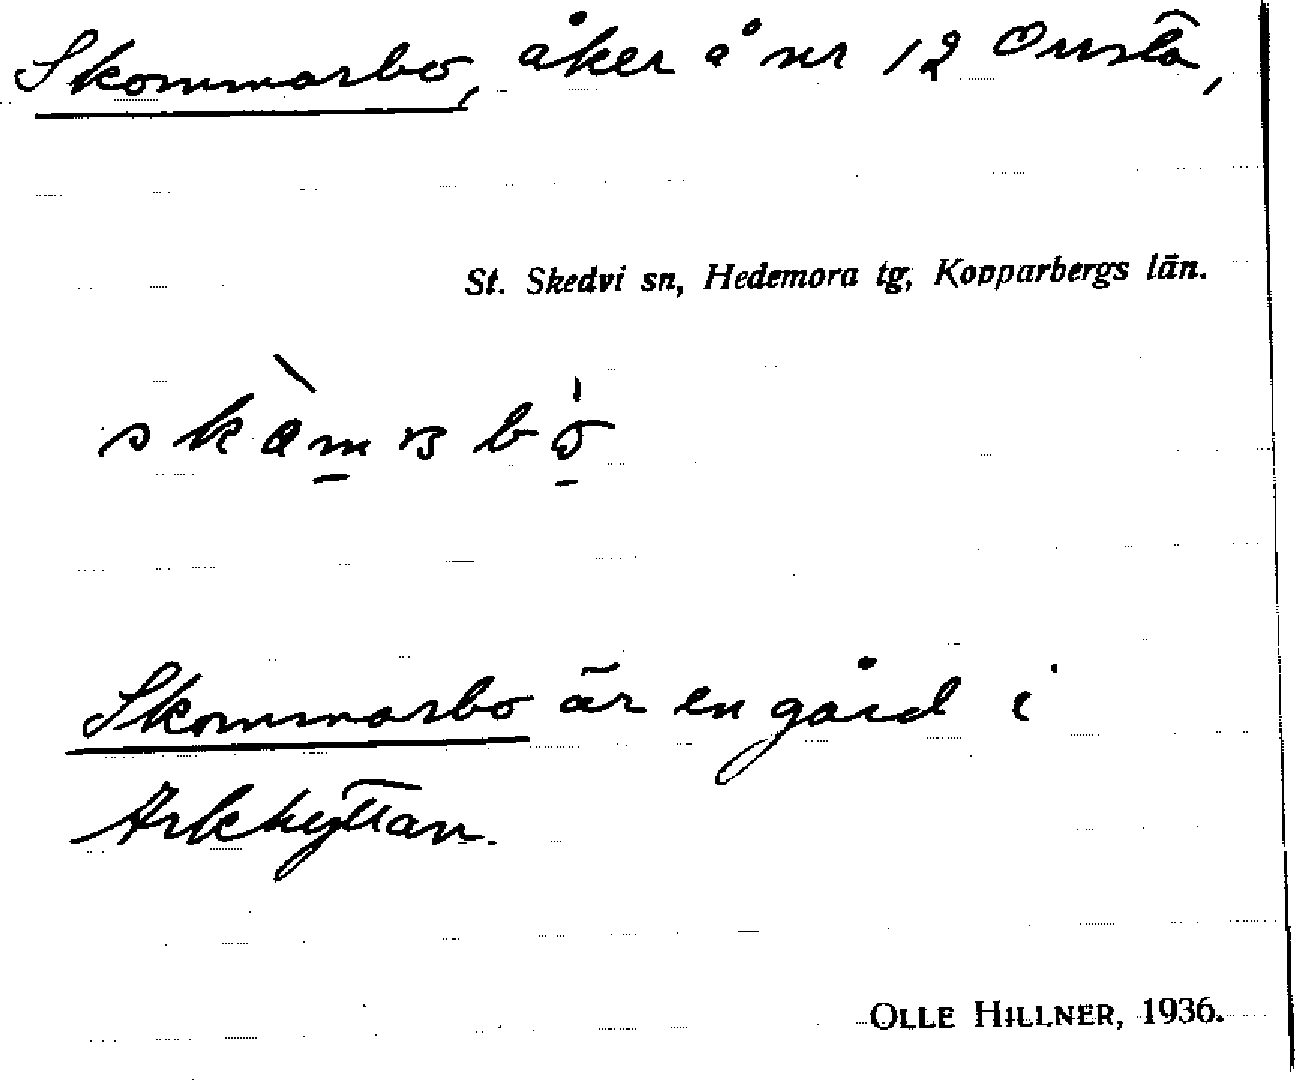 Skommarbo, åker å nr 12 Onsta,
St. Skedvi sn, Hedemora tg, Kopparbergs län.
Skommarbo är en gård i
Arkhyttan.
OLLE HILLNER, 1936.